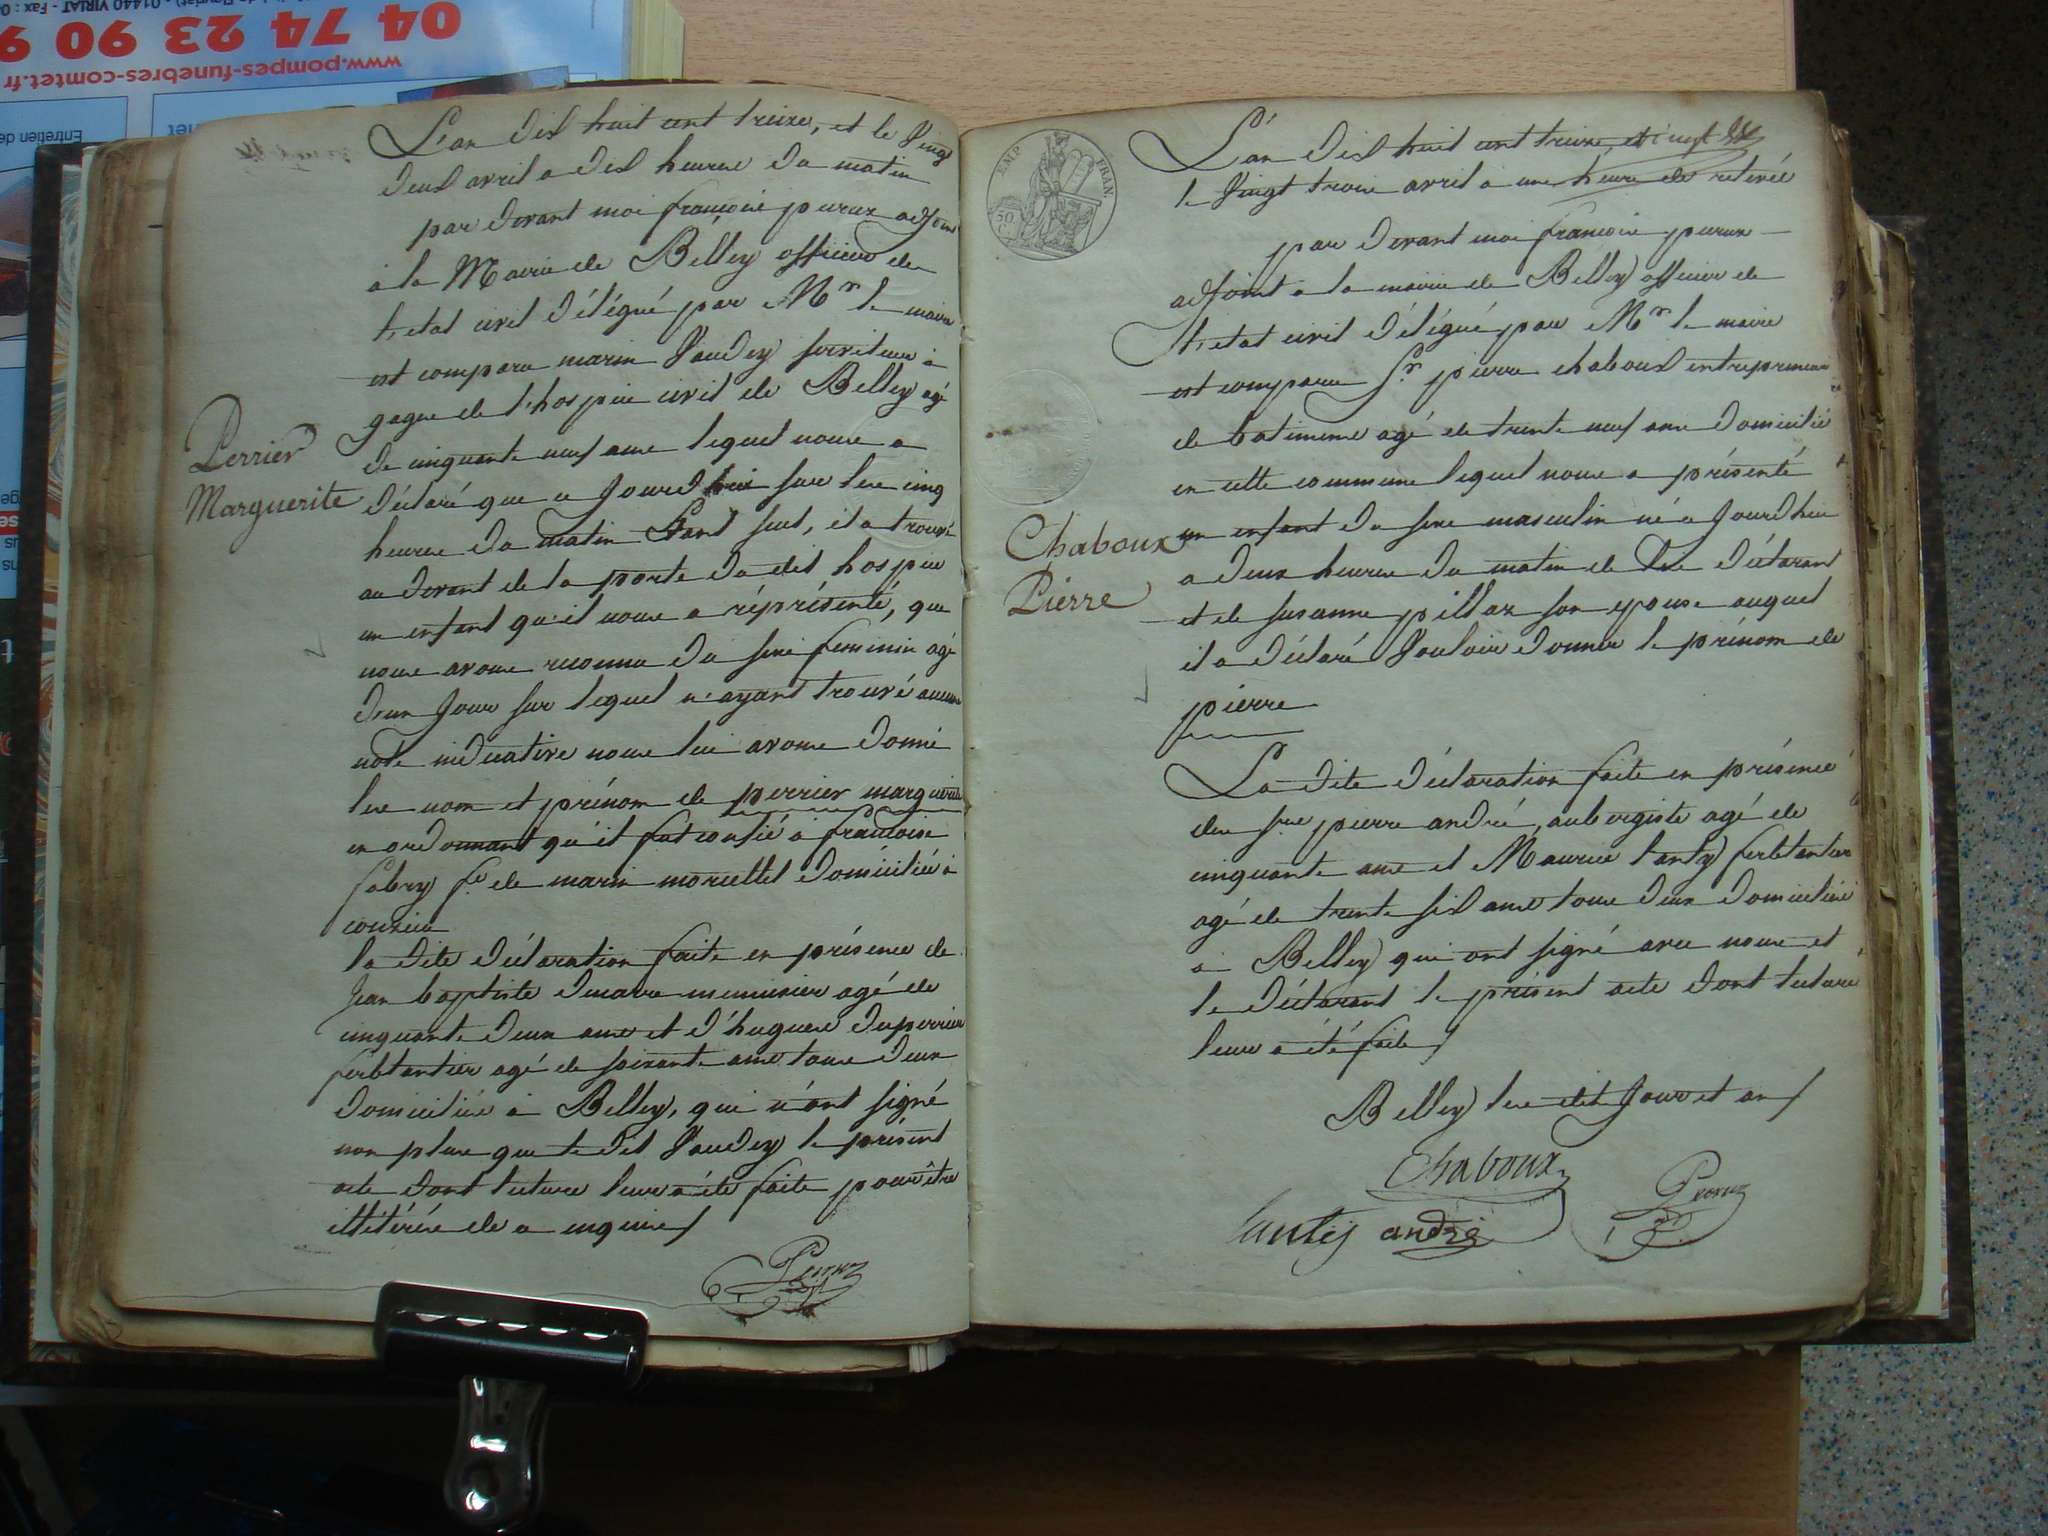 04 74 23 90 9
www.pompes-funebres-comtet.fr
01440 VIRIAT - Fax : 0
Entretien de
L'an dix huit cent treize, et le Vingt
deux avril a dix heures du matin
par devant moi françois peruz adjoint
a la Mairie de Belley officier de
l'etat civil délégué par Mr le maire
est comparu marin Vaudey serviteur à
gages de l'hospice civil de Belley agé
de cinquante neuf ans lequel nous a
Perrier
Marguerite
déclaré que ce Jourdhui sur les cinq
heures du matin Etant seul, il a trouvé
au devant de la porte du dit hospice
un enfant qu'il nous a réprésenté, que
nous avons reconnu du sexe feminin agé
d'un Jour sur lequel n'ayant trouvé aucune
note indicative nous lui avons donné
les nom et prénom de perrier marguerite
en ordonnant qu'il fut confié à françoise
fabry fe de marin morellet domiciliée à
couzieu
la dite déclaration faite en présence de
Jean baptiste menuisier agé de
cinquante deux ans et d'hugues duperrier
ferblantier agé de soixante ans tous deux
domiciliés à Belley, qui n'ont signé
non plus que le dit Vaudey le présent
acte dont lecture leur a été faite pour être
illitérés de ce enquis
Peruz
EMP. FRAN.
50 C.
L'an dix huit cent treize, et
le Vingt trois avril a une heure de relevée
par devant moi françois peruz
adjoint a la mairie de Belley officier de
l'etat civil délégué par Mr le maire
est comparu Sr pierre chaboux entrepreneur
de batimens agé de trente neuf ans domicilié
en cette commune lequel nous a présenté
Chaboux
Pierre
un enfant du sexe masculin né ce Jourdhui
a deux heures du matin de lui déclarant
et de susanne pillaz son epouse auquel
il a déclaré Vouloir donner le prénom de
pierre
La dite déclaration faite en présence
des srs pierre andré, aubergiste agé de
cinquante ans et Maurice lanty ferblantier
agé de trente six ans tous deux domiciliés
à Belley qui ont signé avec nous et
le déclarant le présent acte dont lecture
leur a été faite
Belley les dit Jour et an
Chaboux
lantés andré Peruz